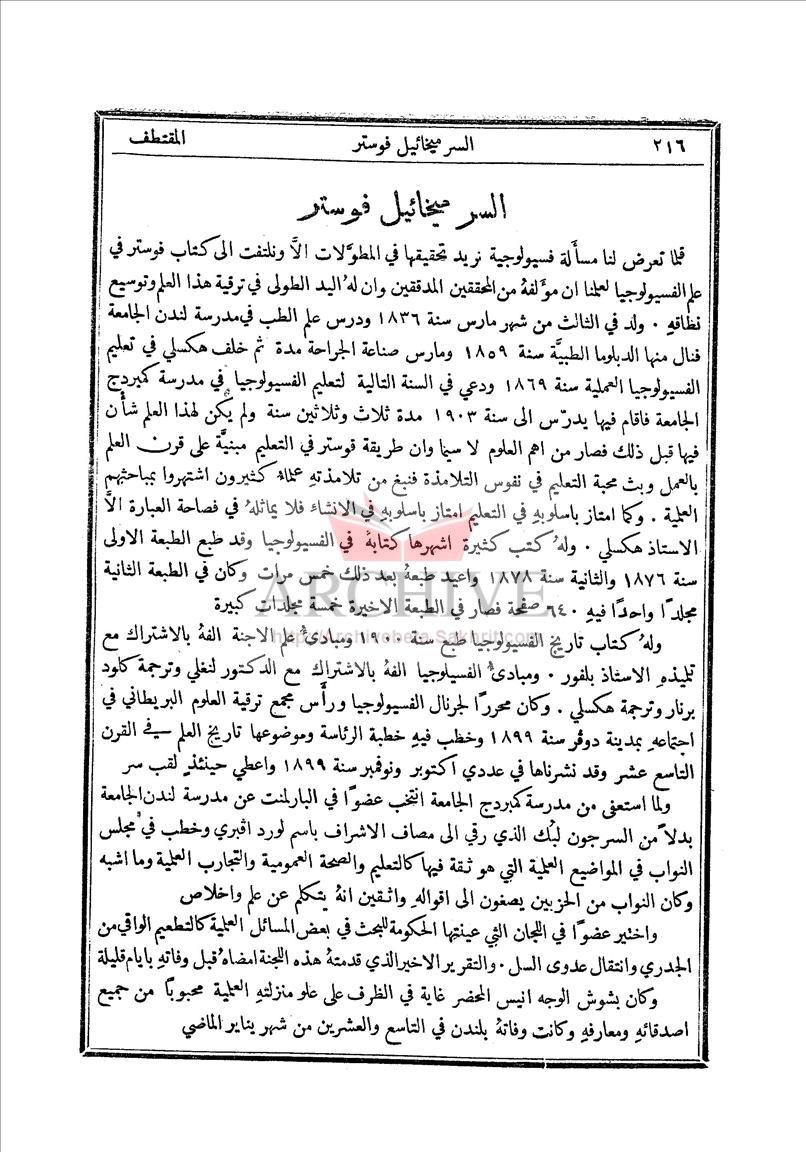 ٢١٦ السر ميخائيل فوستر المقتطف
السر ميخائيل فوستر
قلما تعرض لنا مسأَلة فسيولوجية نريد تحقيقها في المطوَّلات الاَّ ونلتفت الى كتاب فوستر في
علم الفسيولوجيا لعلمنا ان مؤَلفهُ من المحققين المدققين وان لهُ اليد الطولى في ترقية هذا العلم وتوسيع
نطاقهِ . ولد في الثالث من شهر مارس سنة ١٨٣٦ ودرس علم الطب في مدرسة لندن الجامعة
فنال منها الدبلوما الطبيَّة سنة ١٨٥٩ ومارس صناعة الجراحة مدة ثم خلف هكسلي في تعليم
الفسيولوجيا العملية سنة ١٨٦٩ ودعي في السنة التالية لتعليم الفسيولوجيا في مدرسة كمبردج
الجامعة فاقام فيها يدرّس الى سنة ١٩٠٣ مدة ثلاث وثلاثين سنة ولم يكن لهذا العلم شأْن
فيها قبل ذلك فصار من اهم العلوم لا سيما وان طريقة فوستر في التعليم مبنيَّة على قرن العلم
بالعمل وبث محبة التعليم في نفوس التلامذة فنبغ من تلامذتهِ علماءُ كثيرون اشتهروا بمباحثهم
العلمية . وكما امتاز باسلوبهِ في التعليم امتاز باسلوبهِ في الانشاء فلا يماثلهُ في فصاحة العبارة الاَّ
الاستاذ هكسلي . ولهُ كتب كثيرة اشهرها كتابهُ في الفسيولوجيا وقد طبع الطبعة الاولى
سنة ١٨٧٦ والثانية سنة ١٨٧٨ واعيد طبعهُ بعد ذلك خمس مرات وكان في الطبعة الثانية
مجلدًا واحدًا فيهِ ٦٤٠ صفحة فصار في الطبعة الاخيرة خمسة مجلدات كبيرة
ARCHIVE
ولهُ كتاب تاريخ الفسيولوجيا طبع سنة ١٩٠٠ ومبادئُ علم الاجنة الفهُ بالاشتراك مع
http://Archivebeta.Sakhrit.com
تلميذهِ الاستاذ بلفور . ومبادئُ الفسيلوجيا الفهُ بالاشتراك مع الدكتور لنغلي وترجمة كلود
برنار وترجمة هكسلي . وكان محررًا لجرنال الفسيولوجيا ورأَس مجمع ترقية العلوم البريطاني في
اجتماعهِ بمدينة دوڤر سنة ١٨٩٩ وخطب فيهِ خطبة الرئاسة وموضوعها تاريخ العلم في القرن
التاسع عشر وقد نشرناها في عددي اكتوبر ونوفمبر سنة ١٨٩٩ واعطي حينئذٍ لقب سر
ولما استعفى من مدرسة كمبردج الجامعة انتخب عضوًا في البارلمنت عن مدرسة لندن الجامعة
بدلاً من السر جون لبُك الذي رقي الى مصاف الاشراف باسم لورد اڤبري وخطب في مجلس
النواب في المواضيع العلمية التي هو ثقة فيها كالتعليم والصحة العمومية والتجارب العلمية وما اشبه
وكان النواب من الحزبين يصغون الى اقوالهِ واثقين انهُ يتكلم عن علم واخلاص
واختير عضوًا في اللجان التي عينتها الحكومة للبحث في بعض المسائل العلمية كالتطعيم الواقي من
الجدري وانتقال عدوى السل . والتقرير الاخير الذي قدمتهُ هذه اللجنة امضاهُ قبل وفاتهِ بايام قليلة
وكان بشوش الوجه انيس المحضر غاية في الظرف على علو منزلتهِ العلمية محبوبًا من جميع
اصدقائهِ ومعارفهِ وكانت وفاتهُ بلندن في التاسع والعشرين من شهر يناير الماضي